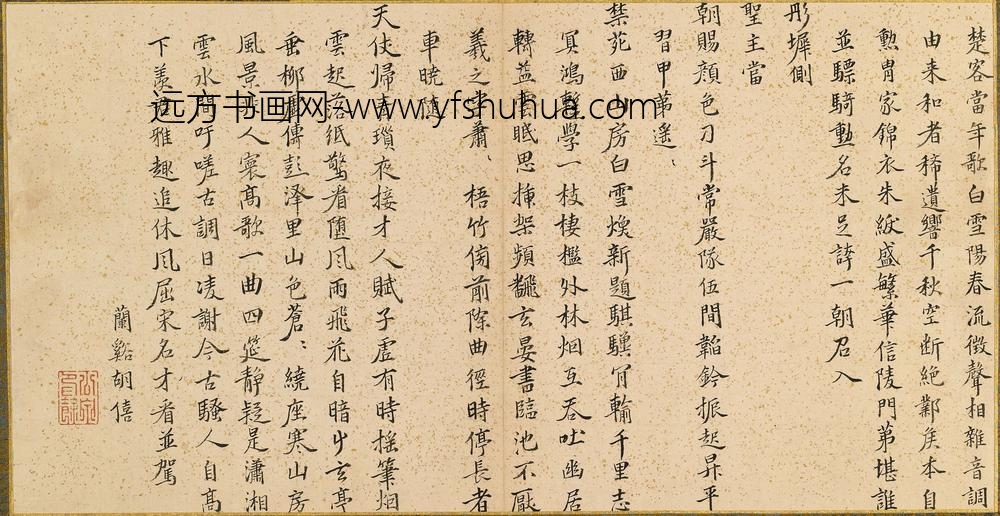 楚客當年歌白雪陽春流徵聲相雜音調
由来和者稀遺響千秋空断絶鄴侯本自
勲胄家錦衣朱紱盛繁華信陵門第堪誰
並驃騎勳名未足誇一朝召入
彤墀側
聖主當
朝賜顔色刀斗常嚴隊伍間韜鈐振起昇平
習甲苐遥〻
禁苑西山房白雪煥新題騏驥冝輸千里志
冥鴻暫學一枝棲檻外林烟互吞吐幽居
轉益雲眠思揷架頻飜玄晏書臨池不厭
羲之書蕭〻梧竹傍前除曲徑時停長者
車曉
天仗歸青瑣夜接才人賦子虛有時揺筆烟
雲起落紙驚看随風雨飛花自暗少玄亭
垂柳舊傳彭泽里山色蒼〻繞座寒山房
風景人寰高歌一曲四筵静疑是瀟湘
雲水間吁嗟古調日凌謝今古騷人自高
下羨君雅趣追休風屈宋名才看並駕
蘭谿胡僖
远方书画网-www.yfshuhua.com